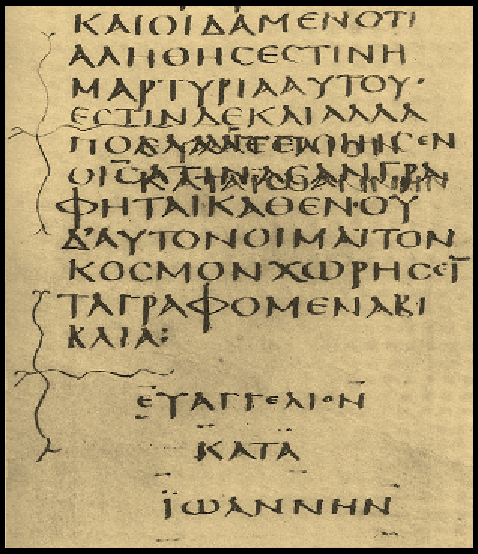 ΚΑΙΟΙΔΑΜΕΝΟΤΙ
ΑΛΗΘΗϹΕϹΤΙΝΗ
ΜΑΡΤΥΡΙΑΑΥΤΟΥ·
ΕϹΤΙΝΔΕΚΑΙΑΛΛΑ
ΠΟΛΛΑΑΕΠΟΙΗϹΕΝ
ΟΙ̅Ϲ̅ΑΤΙΝΑΕΑΝΓΡΑ
ΦΗΤΑΙΚΑΘΕΝ·ΟΥ
Δ’ΑΥΤΟΝΟΙΜΑΙΤΟΝ
ΚΟϹΜΟΝΧΩΡΗϹΕΙ
ΤΑΓΡΑΦΟΜΕΝΑΒΙ
ΒΛΙΑ:
ΕΥΑΓΓΕΛΙΟΝ
ΚΑΤΑ
ΪΩΑΝΝΗΝ